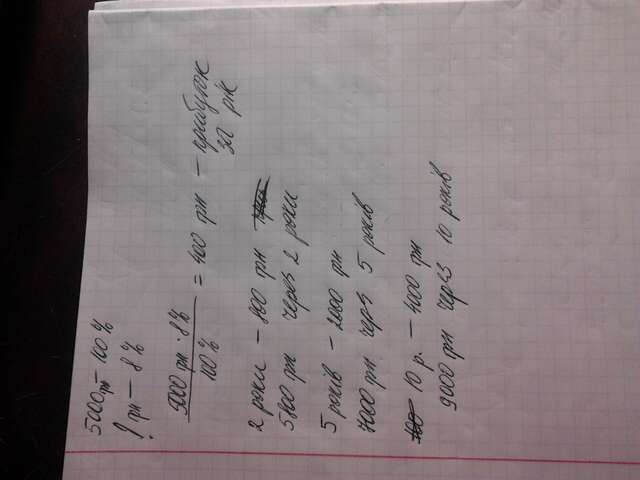 5000грн – 100%
? грн – 8%
5000 грн · 8%
100%
= 400 грн – прибуток
за рік
2 роки – 800 грн
5800 грн через 2 роки
5 років – 2000 грн
7000 грн через 5 років
10 р. – 4000 грн
9000 грн через 10 років